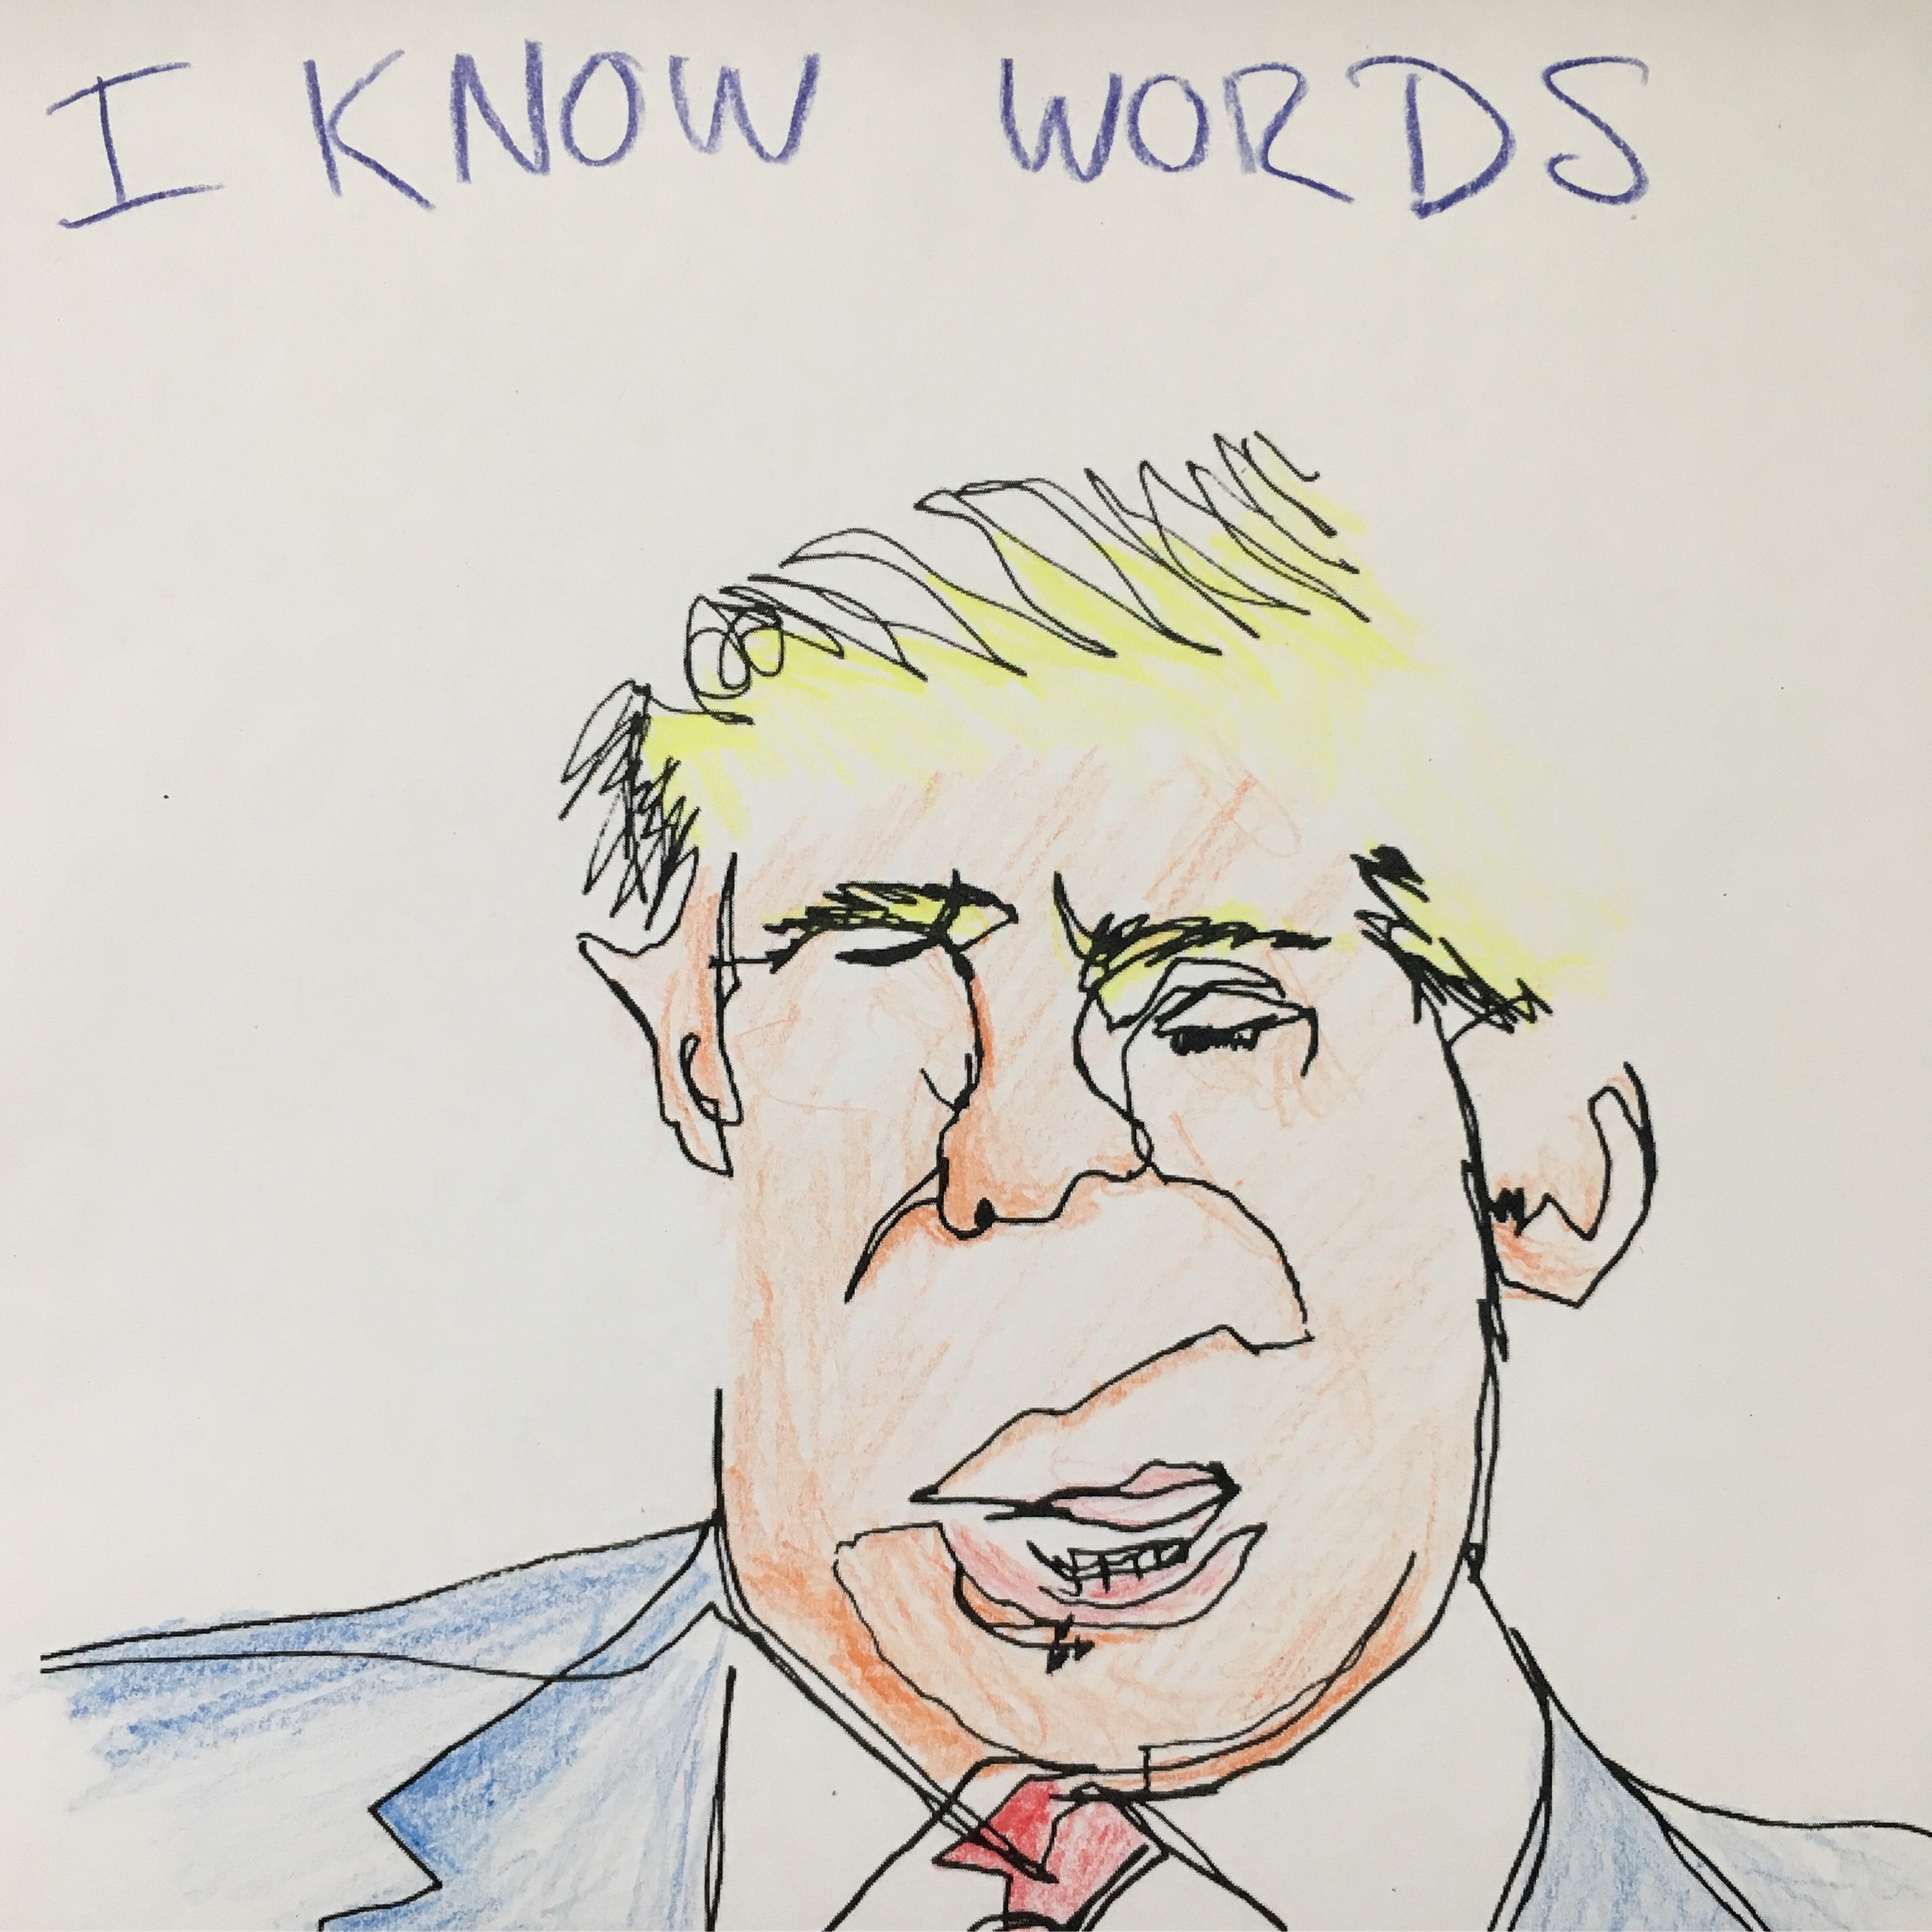 I KNOW WORDS